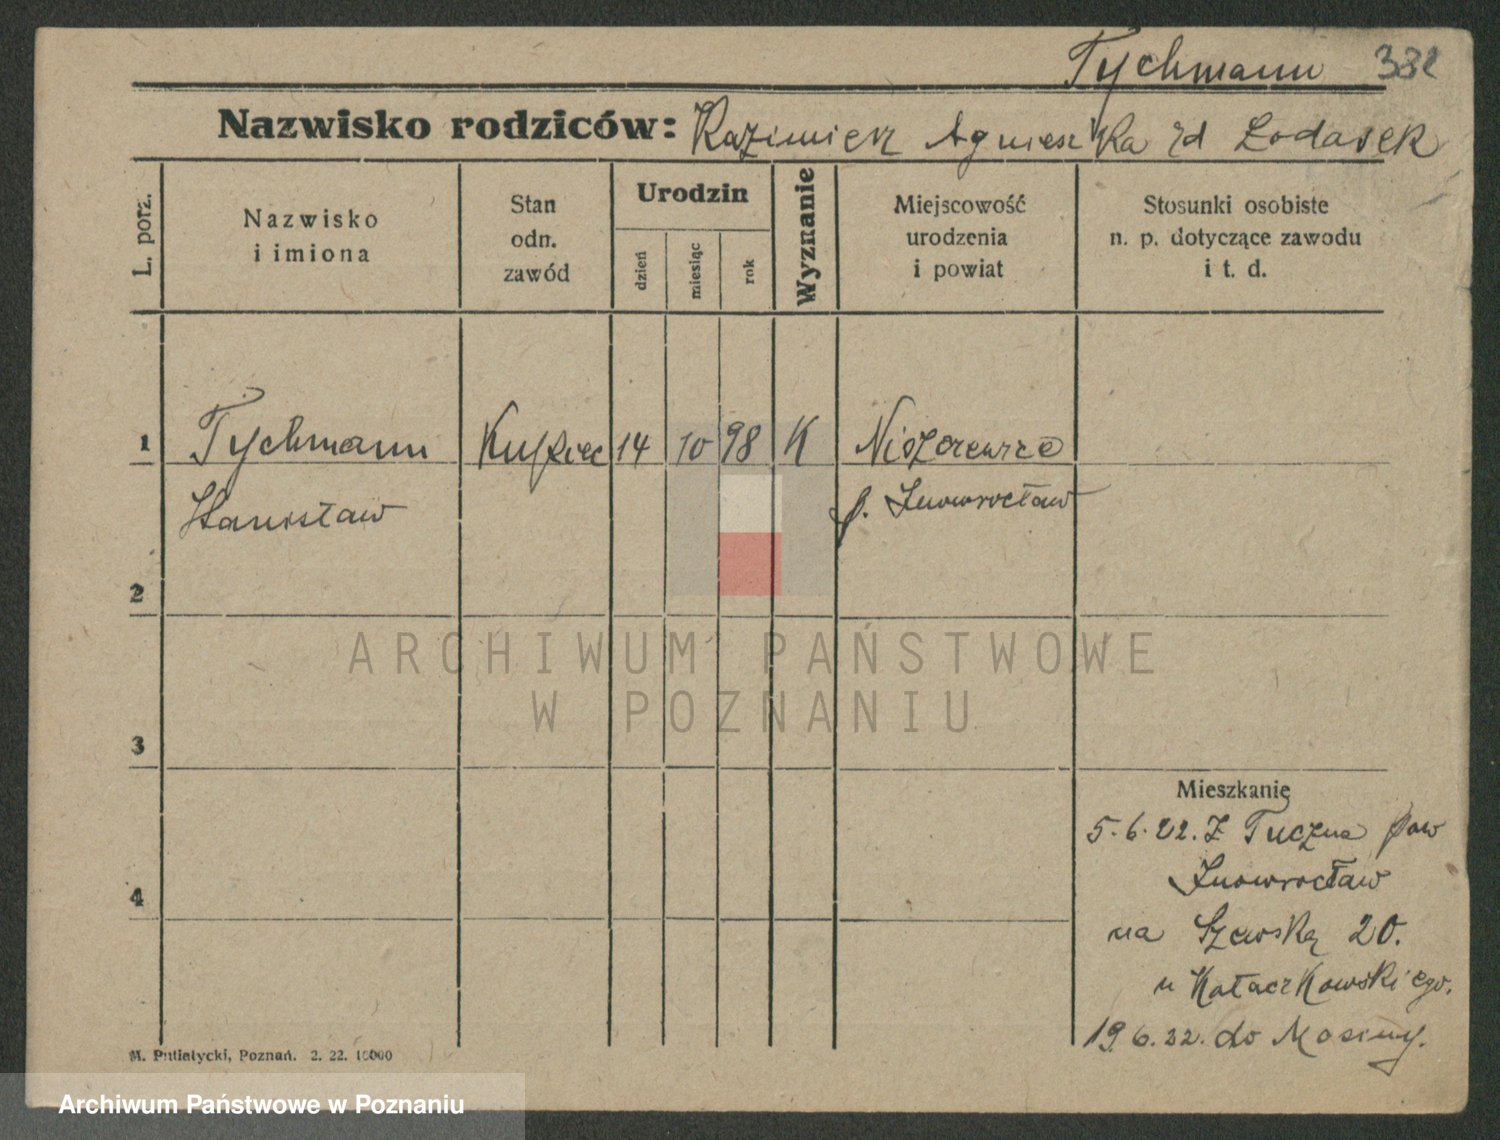 Tychmann 382
Nazwisko rodziców: Kazimierz Agnieszka zd
L. porz.
Nazwisko
i imiona
Stan
odn.
zawód
Urodzin
dzień
miesiąc
rok
Wyznanie
Miejscowość
urodzenia
i powiat
Stosunki osobiste
n. p. dotyczące zawodu
i t. d.
1 Tychmann Kupiec 14 10 98 K Niszczewice
Stanisław p. Inowrocław
2
3
4
Mieszkanie
5.6.22. Z Tuczna pow
Inowrocław
na Szewską 20.
u Kołaczkowskiego.
19.6.22. do Mosiny.
M. Putiatycki, Poznań. 2. 22. 10000
ARCHIWUM PAŃSTWOWE
W POZNANIU
Archiwum Państwowe w Poznaniu